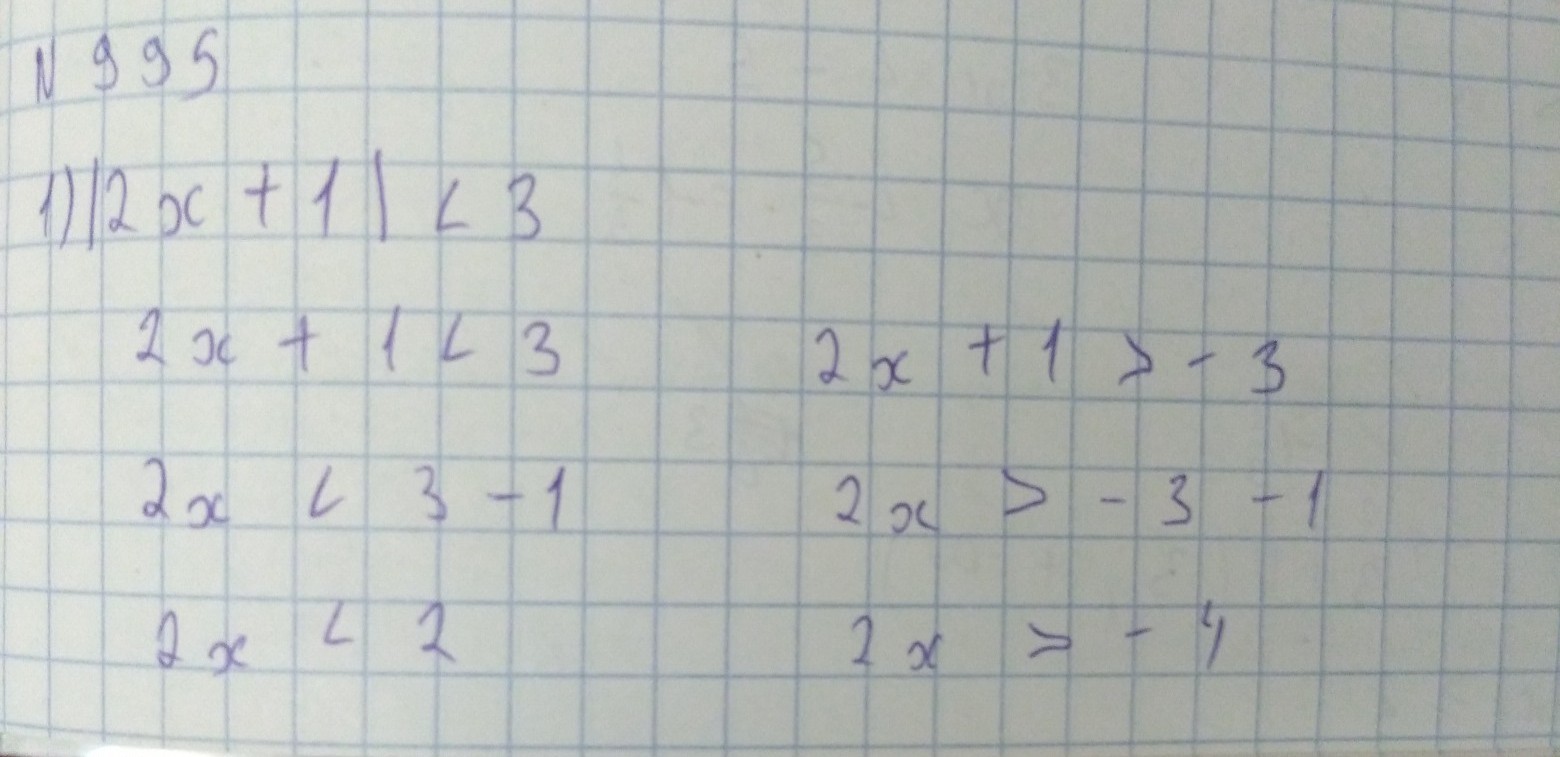 N 995
1) |2x + 1| < 3
2x + 1 < 3 2x + 1 > - 3
2x < 3 - 1 2x > - 3 - 1
2x < 2 2x > - 4